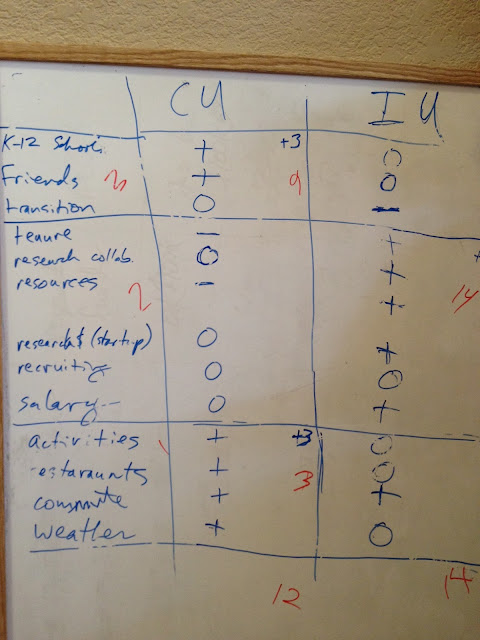 CU IU
K-12 Schools + +3 O
Friends 3 + 9 O
transition O -
tenure - +
research collab. O +
resources 2 - + 14
research $ (startup) O +
recruiting O O
salary - O +
activities + +3 O
restaraunts + 3 O
commute + +
weather + O
12 14